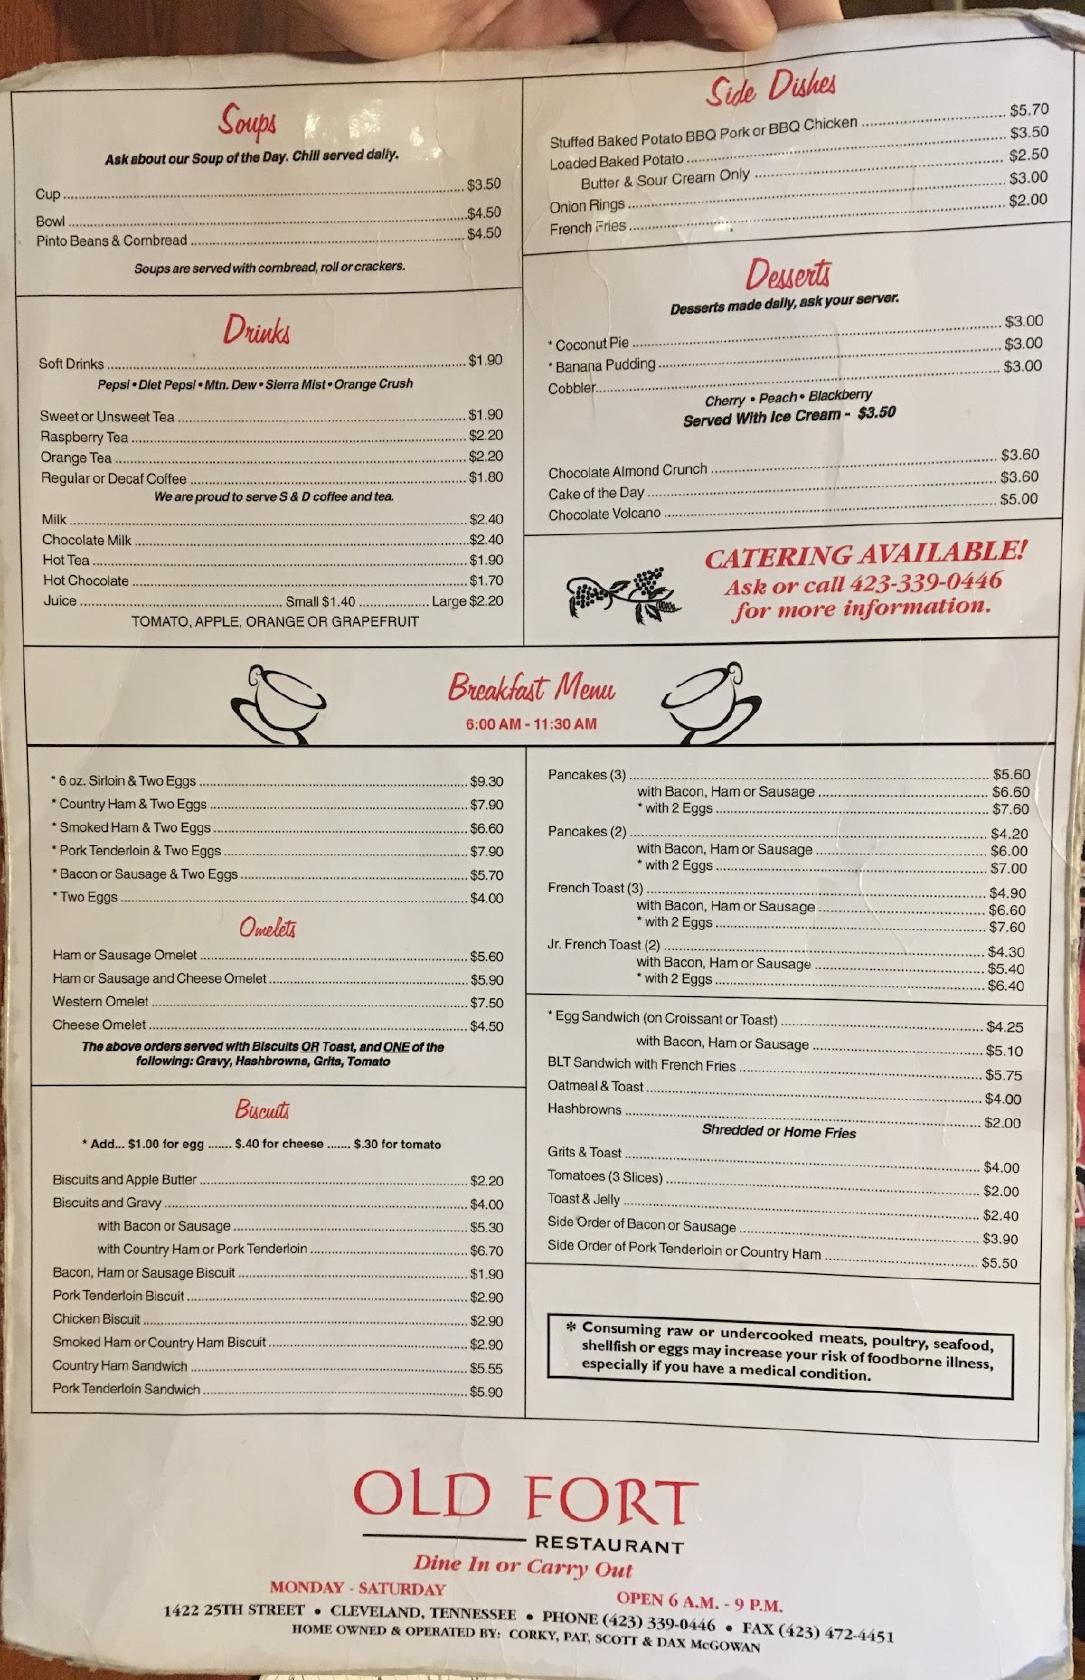 Soups
Ask about our Soup of the Day. Chili served daily.
Cup $3.50
Bowl $4.50
Pinto Beans & Cornbread $4.50
Soups are served with cornbread, roll or crackers.
Drinks
Soft Drinks $1.90
Pepsi • Diet Pepsi • Mtn. Dew • Sierra Mist • Orange Crush
Sweet or Unsweet Tea $1.90
Raspberry Tea $2.20
Orange Tea $2.20
Regular or Decaf Coffee $1.80
We are proud to serve S & D coffee and tea.
Milk $2.40
Chocolate Milk $2.40
Hot Tea $1.90
Hot Chocolate $1.70
Juice Small $1.40 Large $2.20
TOMATO, APPLE, ORANGE OR GRAPEFRUIT
Side Dishes
Stuffed Baked Potato BBQ Pork or BBQ Chicken $5.70
Loaded Baked Potato $3.50
Butter & Sour Cream Only $2.50
Onion Rings $3.00
French Fries $2.00
Desserts
Desserts made daily, ask your server.
* Coconut Pie $3.00
* Banana Pudding $3.00
Cobbler $3.00
Cherry • Peach • Blackberry
Served With Ice Cream - $3.50
Chocolate Almond Crunch $3.60
Cake of the Day $3.60
Chocolate Volcano $5.00
CATERING AVAILABLE!
Ask or call 423-339-0446
for more information.
Breakfast Menu
6:00 AM - 11:30 AM
* 6 oz. Sirloin & Two Eggs $9.30
* Country Ham & Two Eggs $7.90
* Smoked Ham & Two Eggs $6.60
* Pork Tenderloin & Two Eggs $7.90
* Bacon or Sausage & Two Eggs $5.70
* Two Eggs $4.00
Omelets
Ham or Sausage Omelet $5.60
Ham or Sausage and Cheese Omelet $5.90
Western Omelet $7.50
Cheese Omelet $4.50
The above orders served with Biscuits OR Toast, and ONE of the
following: Gravy, Hashbrowns, Grits, Tomato
Biscuits
* Add... $1.00 for egg ....... $.40 for cheese ....... $.30 for tomato
Biscuits and Apple Butter $2.20
Biscuits and Gravy $4.00
with Bacon or Sausage $5.30
with Country Ham or Pork Tenderloin $6.70
Bacon, Ham or Sausage Biscuit $1.90
Pork Tenderloin Biscuit $2.90
Chicken Biscuit $2.90
Smoked Ham or Country Ham Biscuit $2.90
Country Ham Sandwich $5.55
Pork Tenderloin Sandwich $5.90
Pancakes (3) $5.60
with Bacon, Ham or Sausage $6.60
* with 2 Eggs $7.60
Pancakes (2) $4.20
with Bacon, Ham or Sausage $6.00
* with 2 Eggs $7.00
French Toast (3) $4.90
with Bacon, Ham or Sausage $6.60
* with 2 Eggs $7.60
Jr. French Toast (2) $4.30
with Bacon, Ham or Sausage $5.40
* with 2 Eggs $6.40
* Egg Sandwich (on Croissant or Toast) $4.25
with Bacon, Ham or Sausage $5.10
BLT Sandwich with French Fries $5.75
Oatmeal & Toast $4.00
Hashbrowns $2.00
Shredded or Home Fries
Grits & Toast $4.00
Tomatoes (3 Slices) $2.00
Toast & Jelly $2.40
Side Order of Bacon or Sausage $3.90
Side Order of Pork Tenderloin or Country Ham $5.50
* Consuming raw or undercooked meats, poultry, seafood,
shellfish or eggs may increase your risk of foodborne illness,
especially if you have a medical condition.
OLD FORT
RESTAURANT
Dine In or Carry Out
MONDAY - SATURDAY OPEN 6 A.M. - 9 P.M.
1422 25TH STREET • CLEVELAND, TENNESSEE • PHONE (423) 339-0446 • FAX (423) 472-4451
HOME OWNED & OPERATED BY: CORKY, PAT, SCOTT & DAX McGOWAN